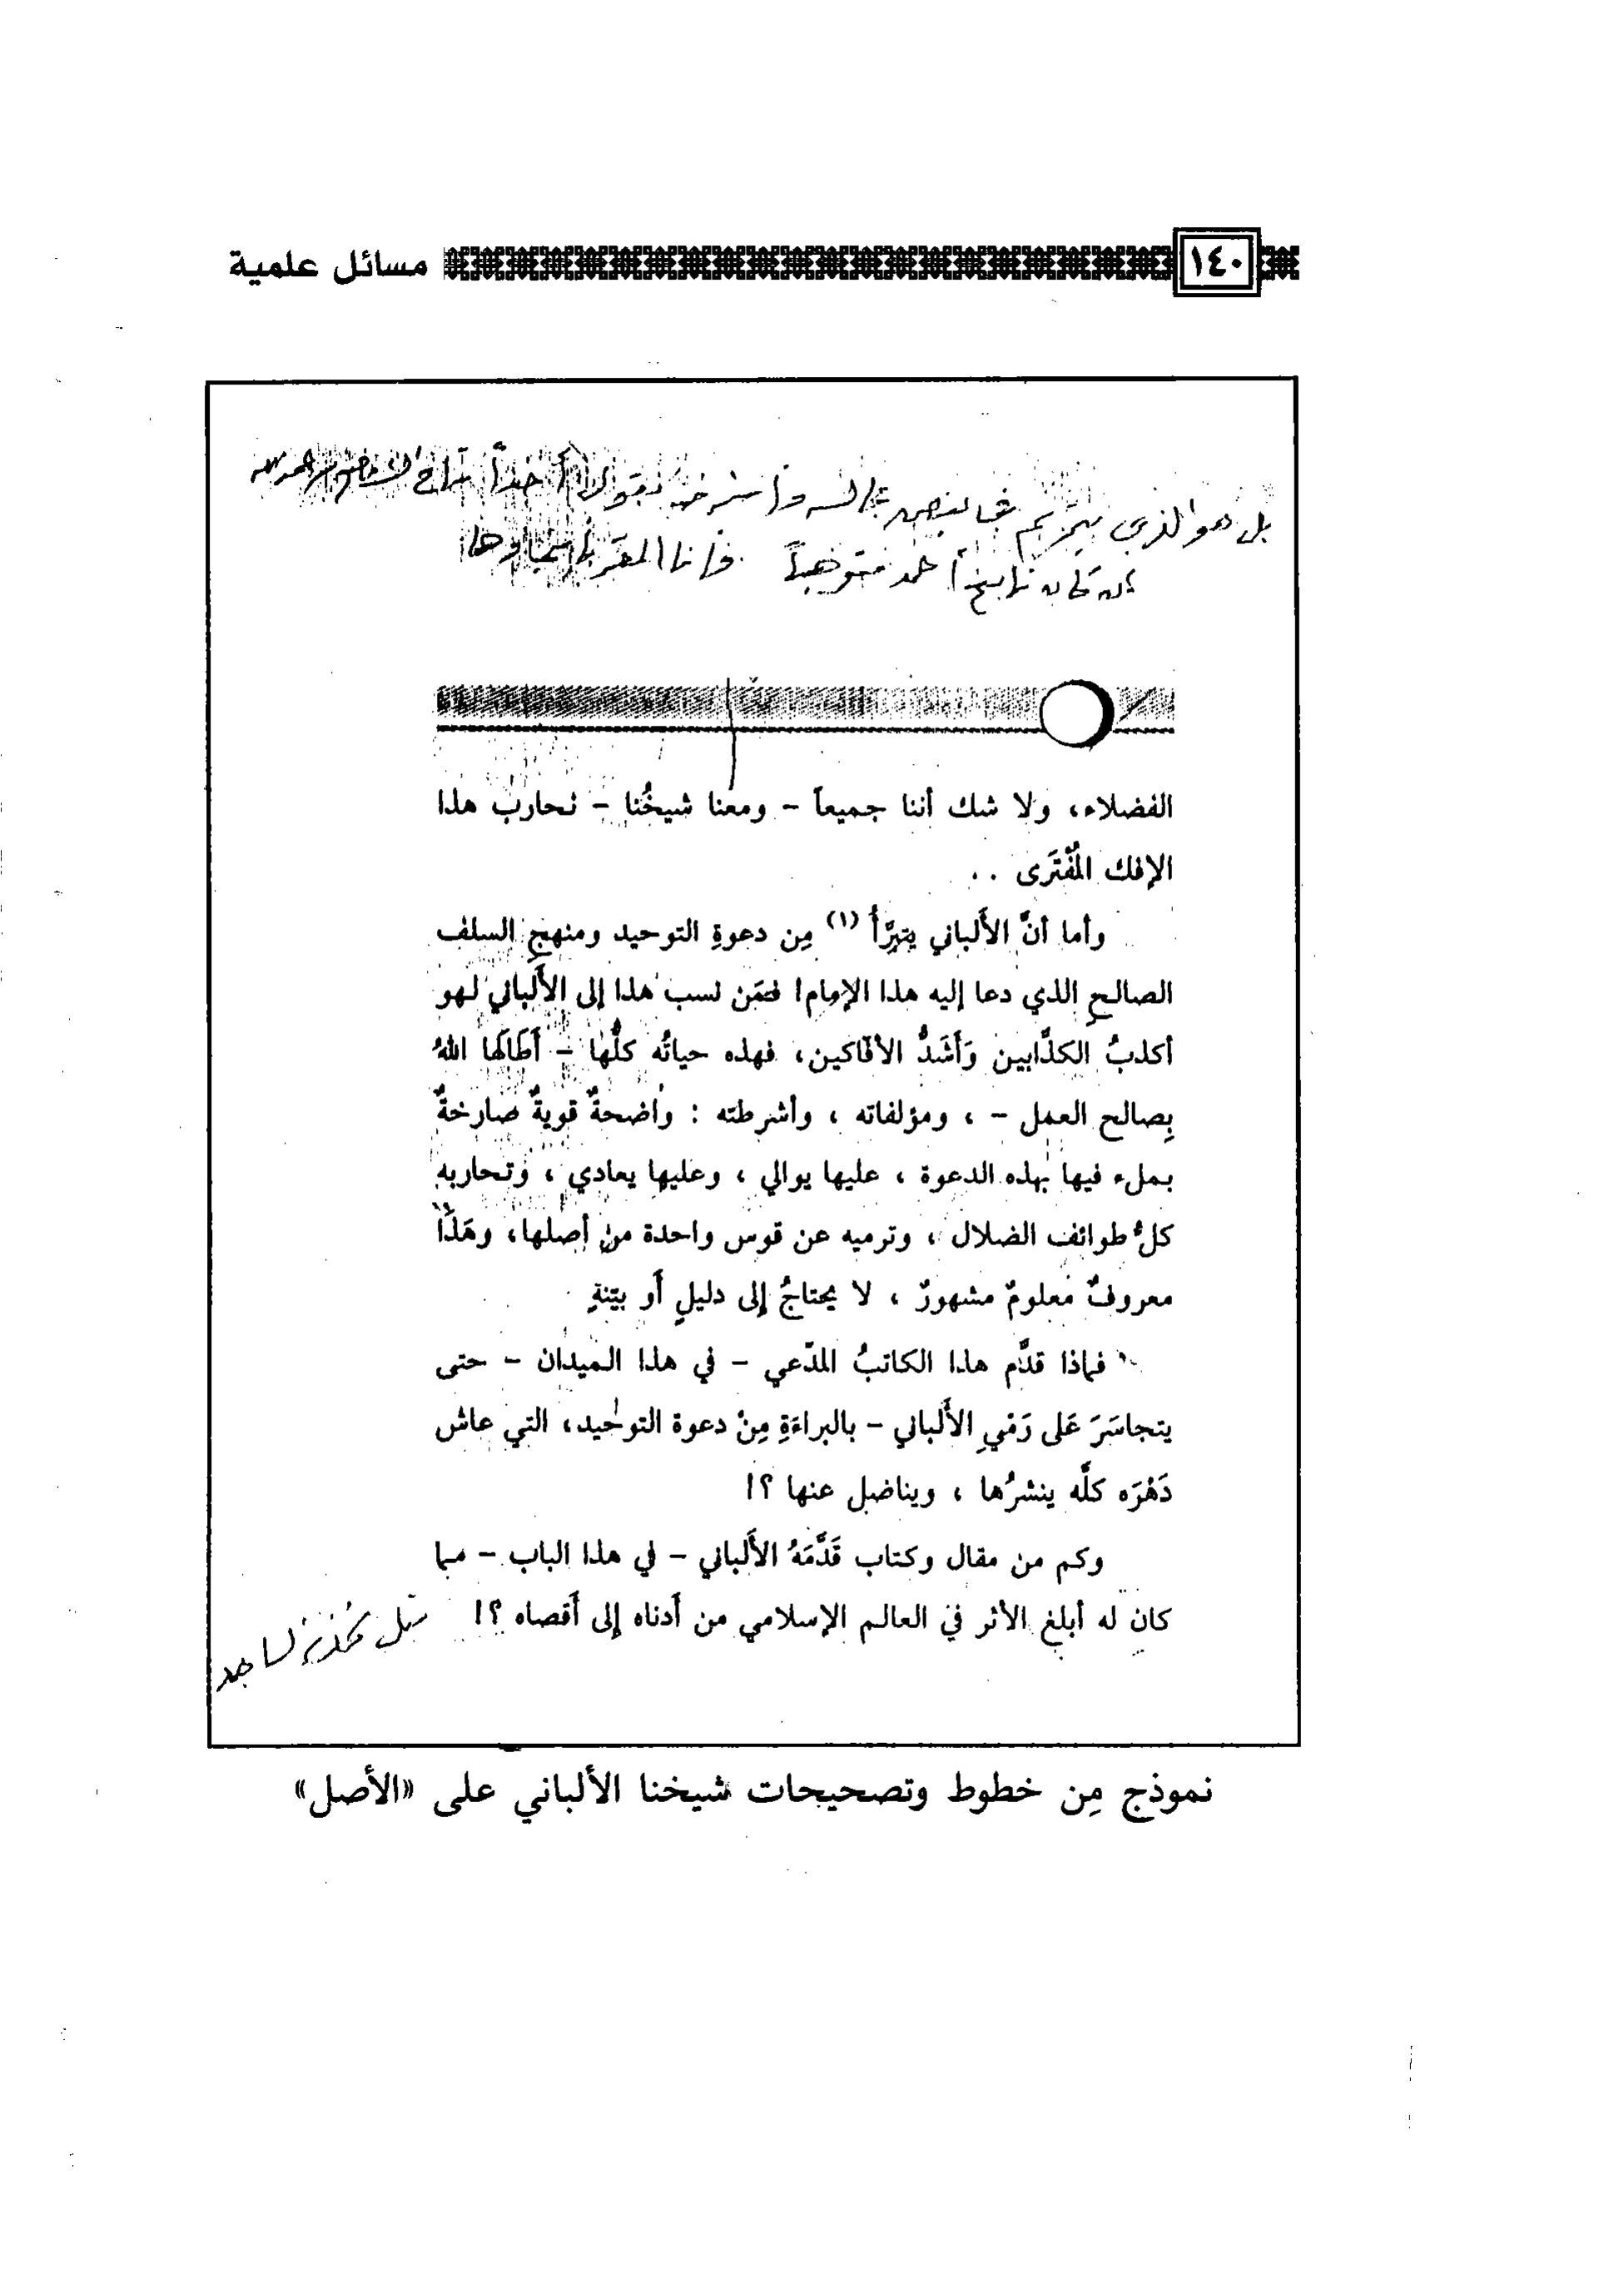 ١٤٠ مسائل علمية
بل هو الذي
إن كان تابع أحمد متوهباً فأنا المقر بأنني وهابي
الفضلاء، ولا شك أننا جميعاً - ومعنا شيخُنا - نحارب هذا
الإفك المُفْتَرَى ..
وأما أنَّ الأَلباني يتبرَّأُ (١) مِن دعوةِ التوحيد ومنهجِ السلف
الصالحِ الذي دعا إليه هذا الإمام! فمَن نسب هذا إلى الأَلباني لهو
أكذبُ الكذَّابين وَأَشَدُّ الأفّاكين، فهذه حياتُه كلُّها - أَطَالَها اللهُ
بِصالح العمل - ، ومؤلفاته ، وأشرطته : واضحةٌ قويةٌ صارخةٌ
بملء فيها بهذه الدعوة ، عليها يوالي ، وعليها يعادي ، وتحاربه
كلُّ طوائف الضلال ، وترميه عن قوس واحدة من أصلها، وهَذَا
معروفٌ معلومٌ مشهورٌ ، لا يحتاجُ إلى دليلٍ أَو بيّنةٍ
فماذا قدَّم هذا الكاتبُ المدّعي - في هذا الميدان - حتى
يتجاسَرَ عَلى رَمْيِ الأَلباني - بالبراءَةِ مِنْ دعوة التوحيد، التي عاش
دَهْرَه كلَّه ينشرُها ، ويناضل عنها ؟!
وكم من مقال وكتاب قَدَّمَهُ الأَلباني - في هذا الباب - مما
كان له أبلغ الأثر في العالم الإسلامي من أَدناه إلى أَقصاه ؟!
مثل تحذير الساجد
نموذج مِن خطوط وتصحيحات شيخنا الألباني على «الأصل»